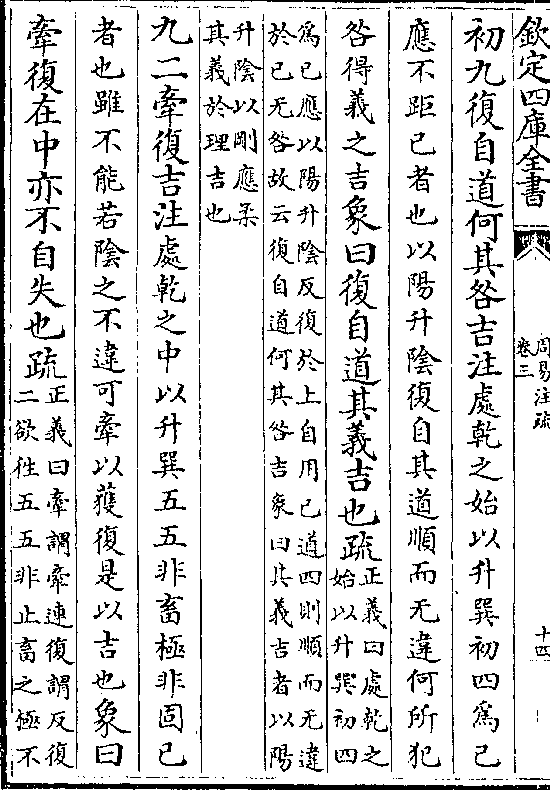 欽定四庫全書
周易注疏
卷三
十四
初九復自道何其咎吉注處乾之始以升巽初四爲已
應不距已者也以陽升陰復自其道順而无違何所犯
咎得義之吉象曰復自道其義吉也疏
正義曰處乾之
始以升巽初四
爲已應以陽升陰反復於上自用已道四則順而无違
於已无咎故云復自道何其咎吉象曰其義吉者以陽
升陰以剛應柔
其義於理吉也
九二牽復吉注處乾之中以升巽五五非畜極非固已
者也雖不能若陰之不違可牽以獲復是以吉也象曰
牽復在中亦不自失也疏
正義曰牽謂牽連復謂反復
二欲往五五非止畜之極不